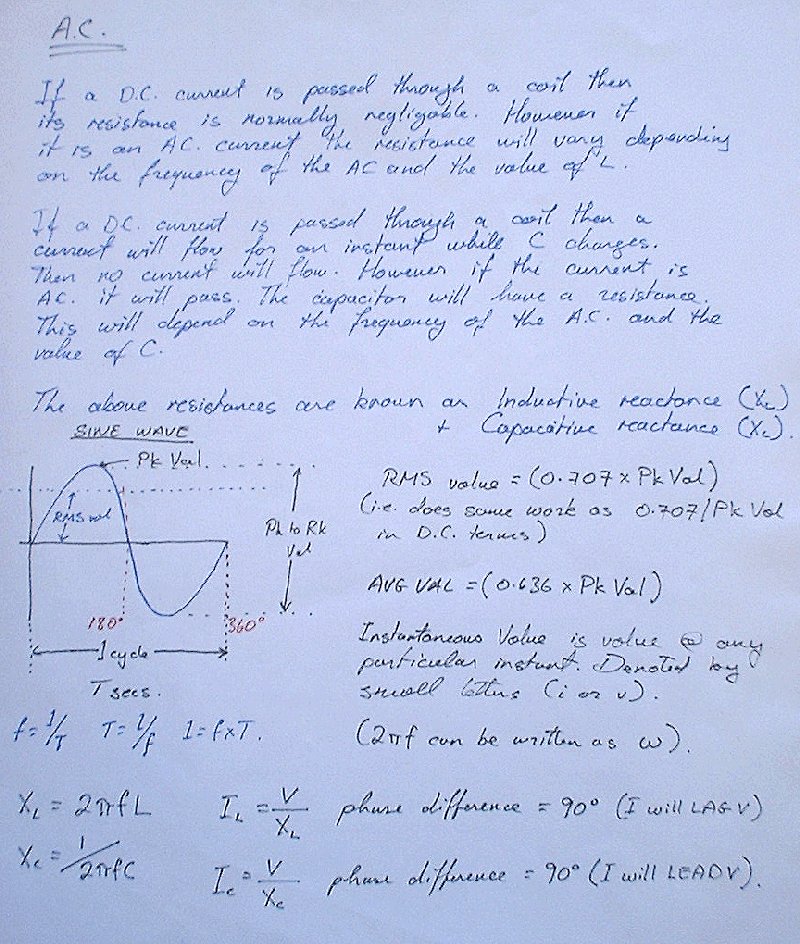 A.C.
If a D.C. current is passed through a coil then
its resistance is normally negligable. However if
it is an AC. current the resistance will vary depending
on the frequency of the AC and the value of L.
If a DC. current is passed through a coil then a
current will flow for an instant while C charges.
Then no current will flow. However if the current is
AC. it will pass. The capacitor will have a resistance.
This will depend on the frequency of the A.C. and the
value of C.
The above resistances are known as Inductive reactance (XL)
+ Capacative reactance (Xc).
SINE WAVE
Pk Val.
RMS val
Pk to Pk
Val
180°
360°
1 cycle
T secs.
RMS value = (0.707 x Pk Val)
(i.e. does same work as 0.707/Pk Val
in D.C. terms)
AVG VAL = (0.636 x Pk Val)
Instantaneous Value is value @ any
particular instant. Denoted by
small letters (i or v).
f = 1/T T = 1/f 1 = f x T.
(2πf can be written as ω).
XL = 2πfL IL = V/XL phase difference = 90° (I will LAG V)
Xc = 1/2πfC Ic = V/Xc phase difference = 90° (I will LEAD V).